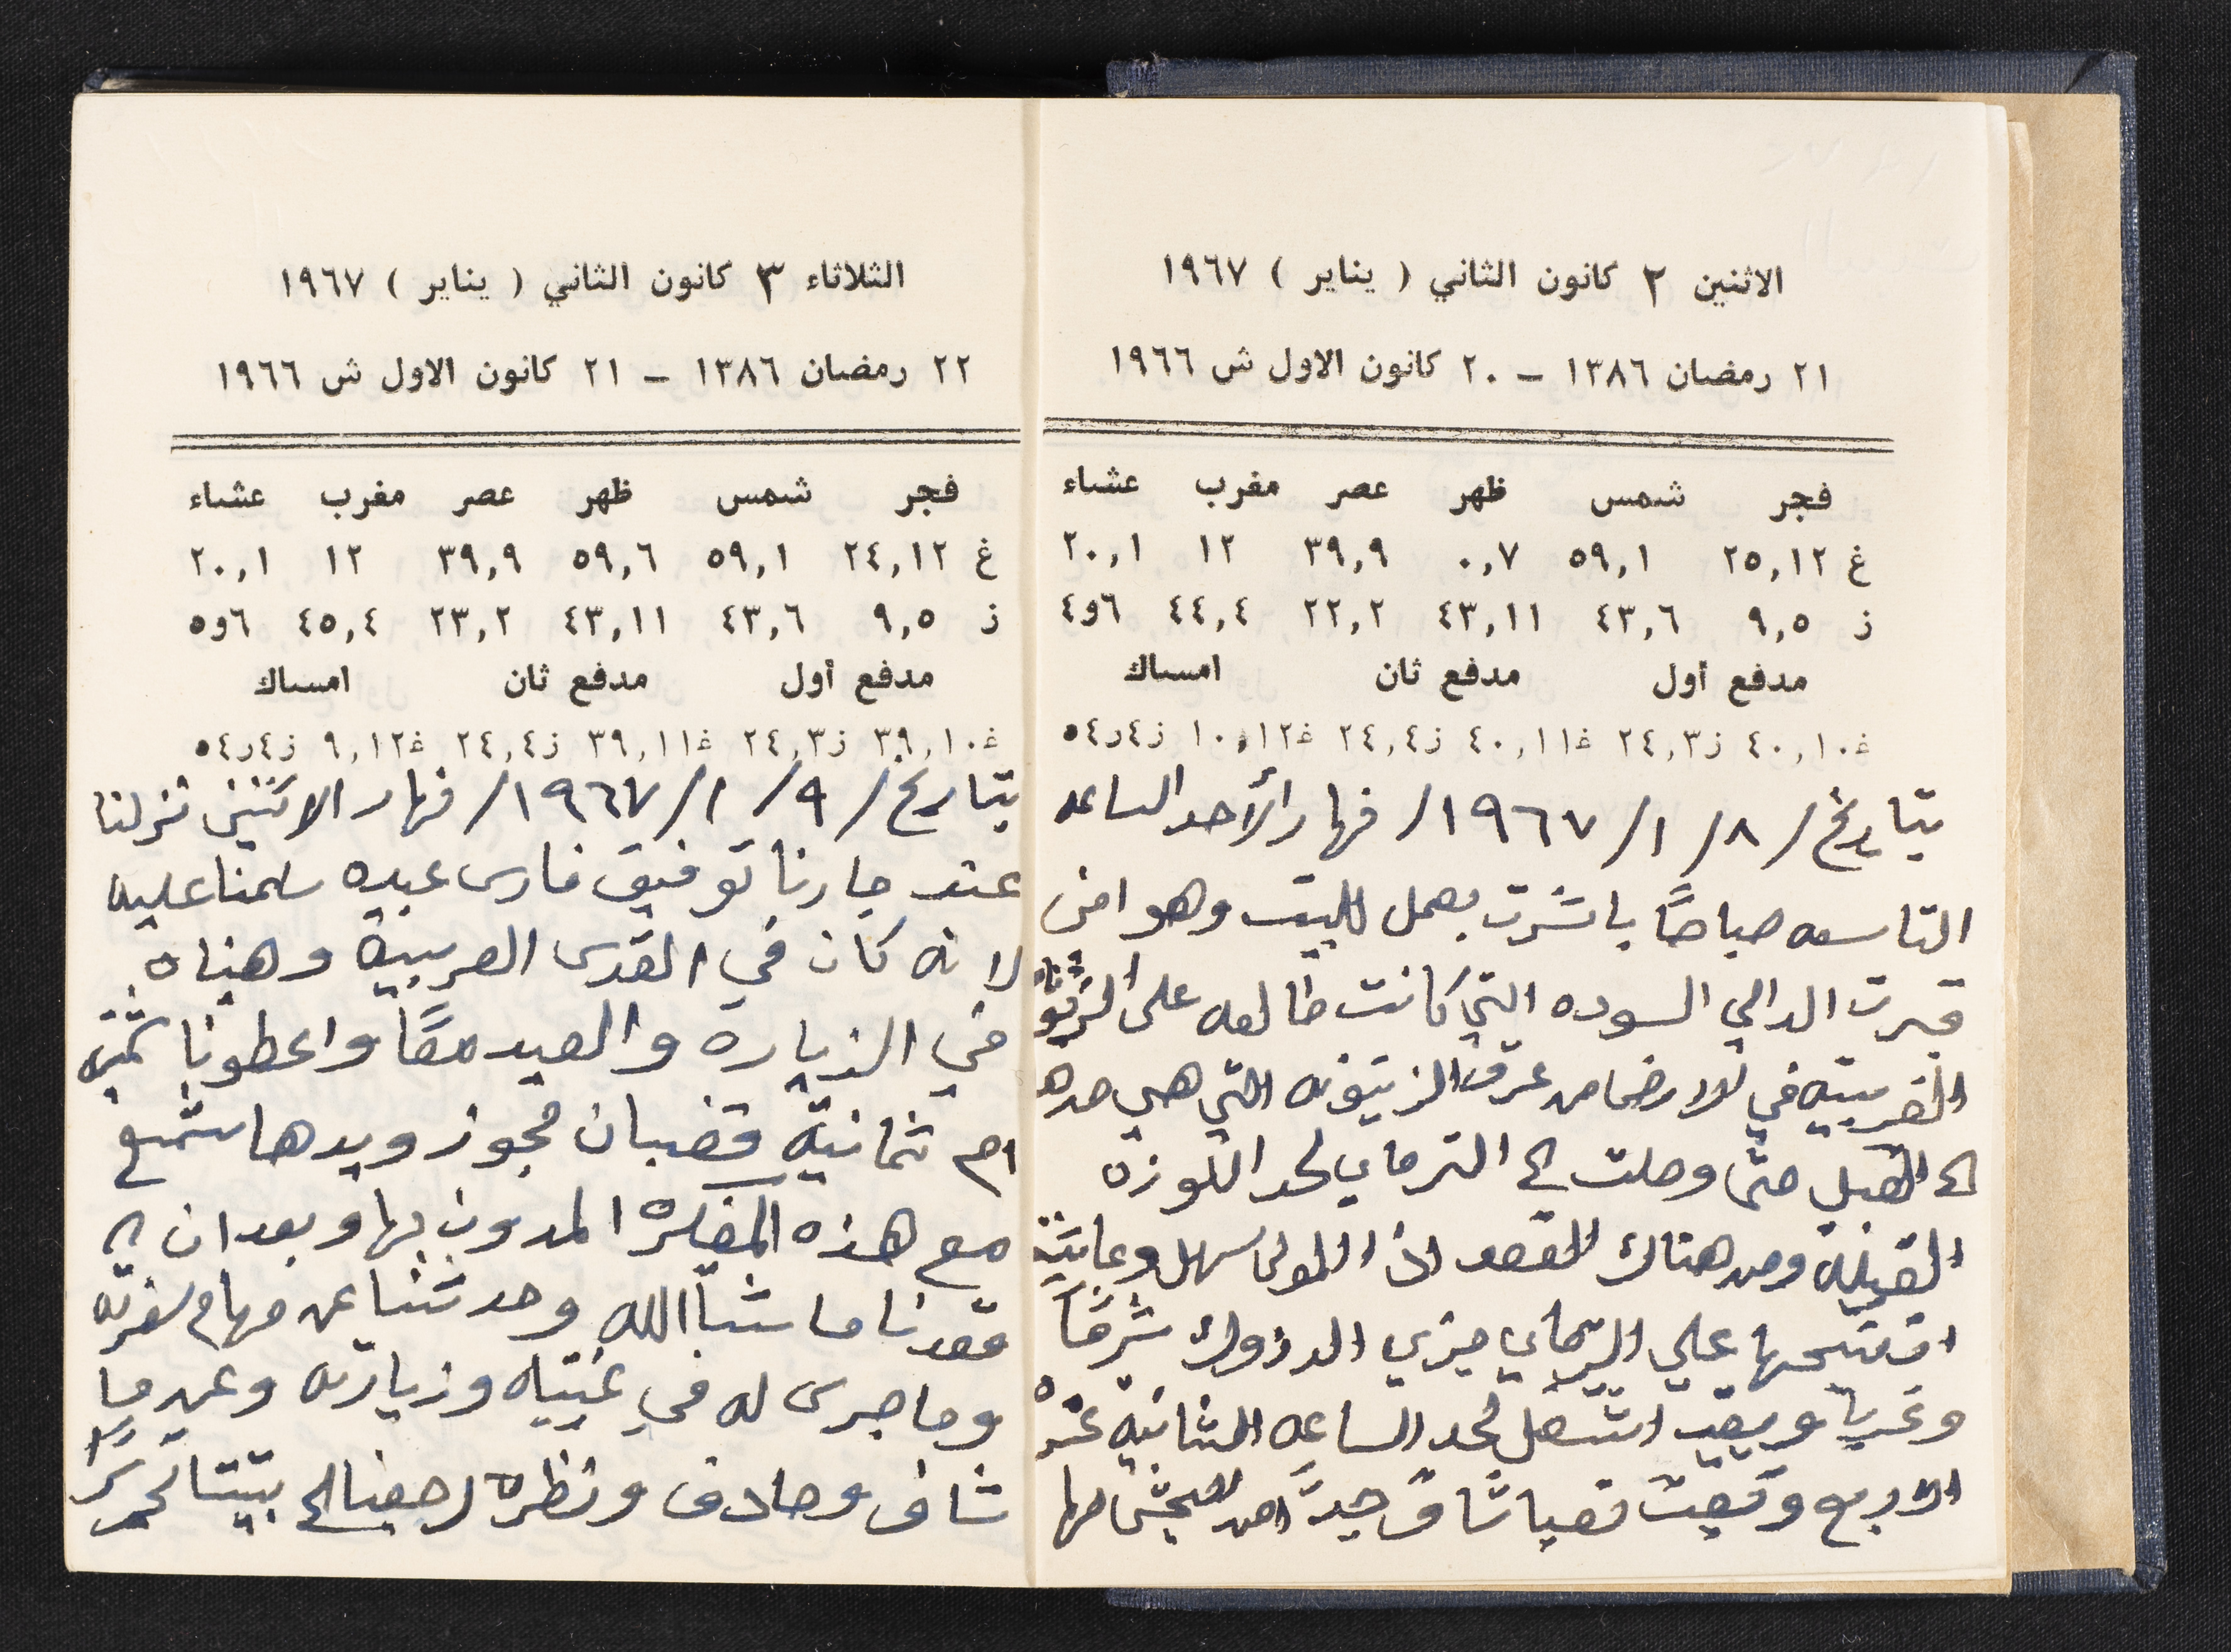 الاثنين ٢ كانون الثاني ( يناير ) ١٩٦٧
٢١ رمضان ١٣٨٦ – ٢٠ كانون الاول ش ١٩٦٦
فجر شمس ظهر عصر مغرب عشاء
غ ٢٥,١٢ ٥٩,١ ٠,٧ ٣٩,٩ ١٢ ٢٠,١
ز ٩,٥ ٤٣,٦ ٤٣,١١ ٢٢,٢ ٤٤,٤ ٦و٤
مدفع أول مدفع ثان امساك
غ٤٠,١٠ ز٢٤,٣ غ٤٠,١١ ز٢٤,٤ غ١٠,١٢ ز٥٤,٤
بتاريخ /٨/١/١٩٦٧/ نهار الأحد الساعه
التاسعه صباحًا باشرت بعمل البيت وهو اني
قبرت الدالي السوده التي كانت طالعه على الزيتونه
الغربيه في الارض من عرق الزيتونه التي هي حدها
الى القبلي حتى وصلت الى الترماي لحد اللوزه
القبليه ومن هناك القصد اذا المولى سهل وعايشه
افتتحها على الترماي ميزي الدروك شرقاً
وغرباً وبقيت اشتغل لحد الساعه الثانيه عشره
الاربع وتعبت تعباً شاق جداً من
الثلاثاء ٣ كانون الثاني ( يناير ) ١٩٦٧
٢٢ رمضان ١٣٨٦ – ٢١ كانون الاول ش ١٩٦٦
فجر شمس ظهر عصر مغرب عشاء
غ ٢٤,١٢ ٥٩,١ ٥٩,٦ ٣٩,٩ ١٢ ٢٠,١
ز ٩,٥ ٤٣,٦ ٤٣,١١ ٢٣,٢ ٤٥,٤ ٦و٥
مدفع أول مدفع ثان امساك
غ٣٩,١٠ ز٢٤,٣ غ٣٩,١١ ز٢٤,٤ غ٩,١٢ ز٥٤,٤
بتاريخ /٩/١/١٩٦٧/ نهار الاثنين نزلنا
عند جارنا توفيق فارس عبيده سلمنا عليه
لانه كان في القدس العربية وهنيناه
في الزياره والعيد معًا واعطونا
ام ثمانية قضبان مجوز ويدها شمع
مع هذه المفكره المدون بها وبعد ان
قعدنا ما شاالله وحدثنا عن مهام سفرته
وما جرى له في غيبته وزيارته وعن ما
شاف وصادف ونظره رجعنا الى بيتنا